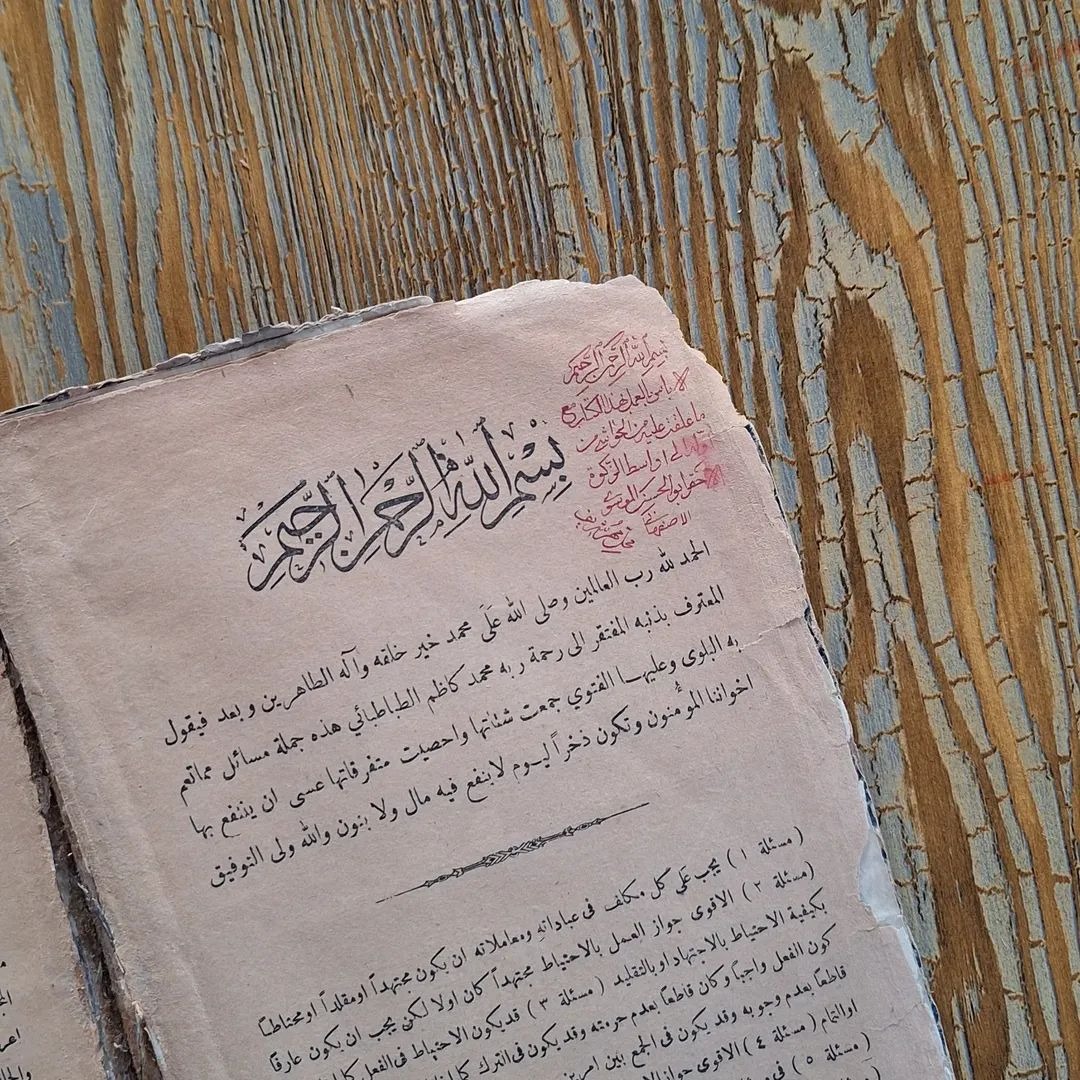 بسم الله الرحمن الرحيم
لا بأس بالعمل بهذا الكتاب مع
ما علقت عليه من الحواشي من
الى اواسط الزكوة
ابو الحسن الموسوي
الاصفهاني
بِسْمِ اللهِ الرَّحْمنِ الرَّحِيمِ
الحمد لله رب العالمين وصلى الله عَلَى محمد خير خلقه وآله الطاهرين وبعد فيقول
المعترف بذنبه المفتقر الى رحمة ربه محمد كاظم الطباطبائي هذه جملة مسائل مماتعم
به البلوى وعليهـا الفتوي جمعت شتاتها واحصيت متفرقاتها عسى ان ينتفع بها
اخواننا المؤمنون وتكون ذخراً ليـوم لاينفع فيه مال ولا بنون والله ولى التوفيق
( مسئلة ١ ) يجب عَلَى كل مكلف فى عباداته ومعاملاته ان يكون مجتهداً اومقلداً اومحتاطاً
(مسئلة ٢ ) الاقوى جواز العمل بالاحتياط مجتهداً كان اولا لكن يجب ان يكون عارفا
بكيفية الاحتياط بالاجتهاد او بالتقليد ( مسئلة ٣ ) قد يكون الاحتياط فى الفعل كما
كون الفعل واجباً وكان قاطعاً بعدم حرمته وقد يكون فى الترك كما
قاطعاً بعدم وجوبه وقد يكون فى الجمع بين امرين
اوالتمام ( مسئلة ٤ ) الاقوى جواز
( مسئلة ٥ ) فى